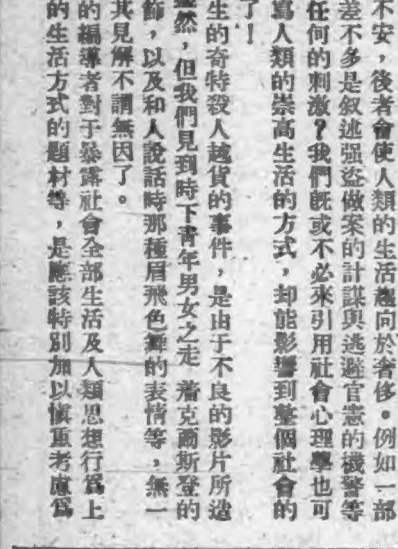 不安，後者會使人類的生活趨向於奢侈。例如一部
差不多是叙述强盜做案的計謀與逃避官憲的機警等
任何的刺激？我們旣或不必來引用社會心理學也可
寫人類的崇高生活的方式，却能影響到整個社會的
了！
生的奇特發人越貨的事件，是由于不良的影片所造
然，但我們見到時下靑年男女之走 着克爾斯登的
飾，以及和人說話時那種眉飛色舞的表情等，無一
其見解不謂無因了。
的編導者對于暴露社會全部生活及人類思想行爲上
的生活方式的題材等，是應該特別加以愼重考慮爲